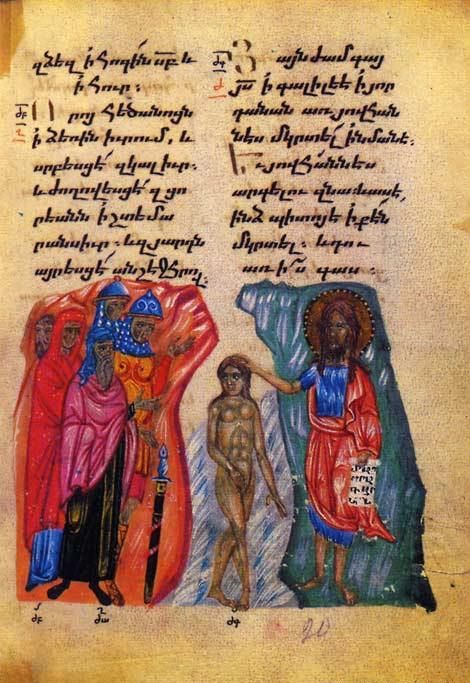 զձեզ ի հոգին սբ և
ի հուր։
Որոյ հեծանոցն
ի ձեռին իւրում, և
սրբեսցէ զկալ իւր.
և ժողովեսցէ զցո
րեանն ի շտեմա
րանս իւր. և զյարդն
այրեսցէ անշէջ հրով.
Յայնժամ գայ
յս ի գալիլեէ ի յոր
դանան առ յովհան
նես մկրտել ի նմանէ.
Եւ յովհաննես
արգելու զնա և ասէ,
ինձ պիտոյ է ի քէն
մկրտել. և դու
առ իս գաս։